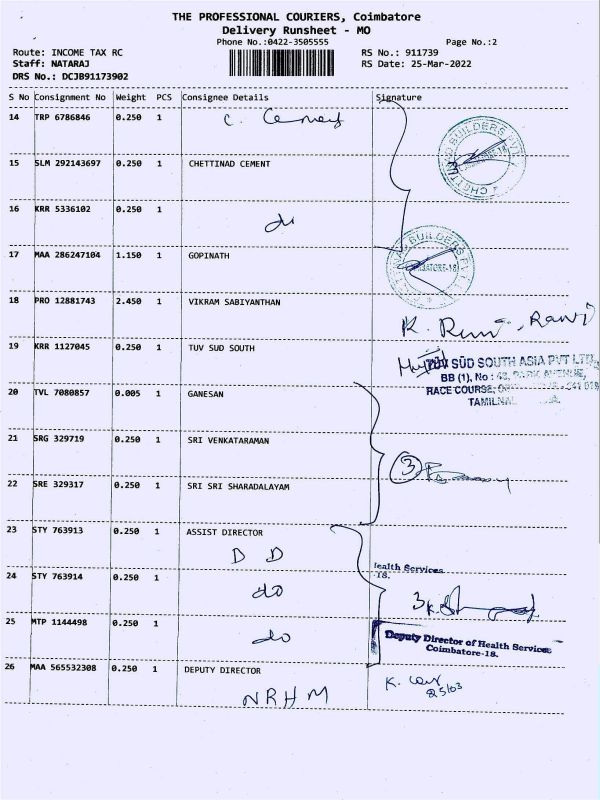 THE PROFESSIONAL COURIERS, Coimbatore
Delivery Runsheet - MO
Phone No.:0422-3505555
Page No.:2
Route: INCOME TAX RC
RS No.: 911739
Staff: NATARAJ
RS Date: 25-Mar-2022
DRS No.: DCJB91173902
S No Consignment No Weight PCS Consignee Details Signature
14 TRP 6786846 0.250 1 C. Cement
CHETTINAD BUILDERS PVT
15 SLM 292143697 0.250 1 CHETTINAD CEMENT
16 KRR 5336102 0.250 1 do
BUILDERS PVT
COIMBATORE-18
17 MAA 286247104 1.150 1 GOPINATH
18 PRO 12881743 2.450 1 VIKRAM SABIYANTHAN
K.
19 KRR 1127045 0.250 1 TUV SUD SOUTH
TUV SÜD SOUTH ASIA PVT LTD.,
BB (1), No : 43, PARK AVENUE,
RACE COURSE, 641 018
TAMILNA
20 TVL 7080857 0.005 1 GANESAN
21 SRG 329719 0.250 1 SRI VENKATARAMAN
3
22 SRE 329317 0.250 1 SRI SRI SHARADALAYAM
23 STY 763913 0.250 1 ASSIST DIRECTOR
D D
Health Services
-18.
24 STY 763914 0.250 1
do
3
25 MTP 1144498 0.250 1
do
Deputy Director of Health Services
Coimbatore-18.
26 MAA 565532308 0.250 1 DEPUTY DIRECTOR
NRHM
K.
25/03